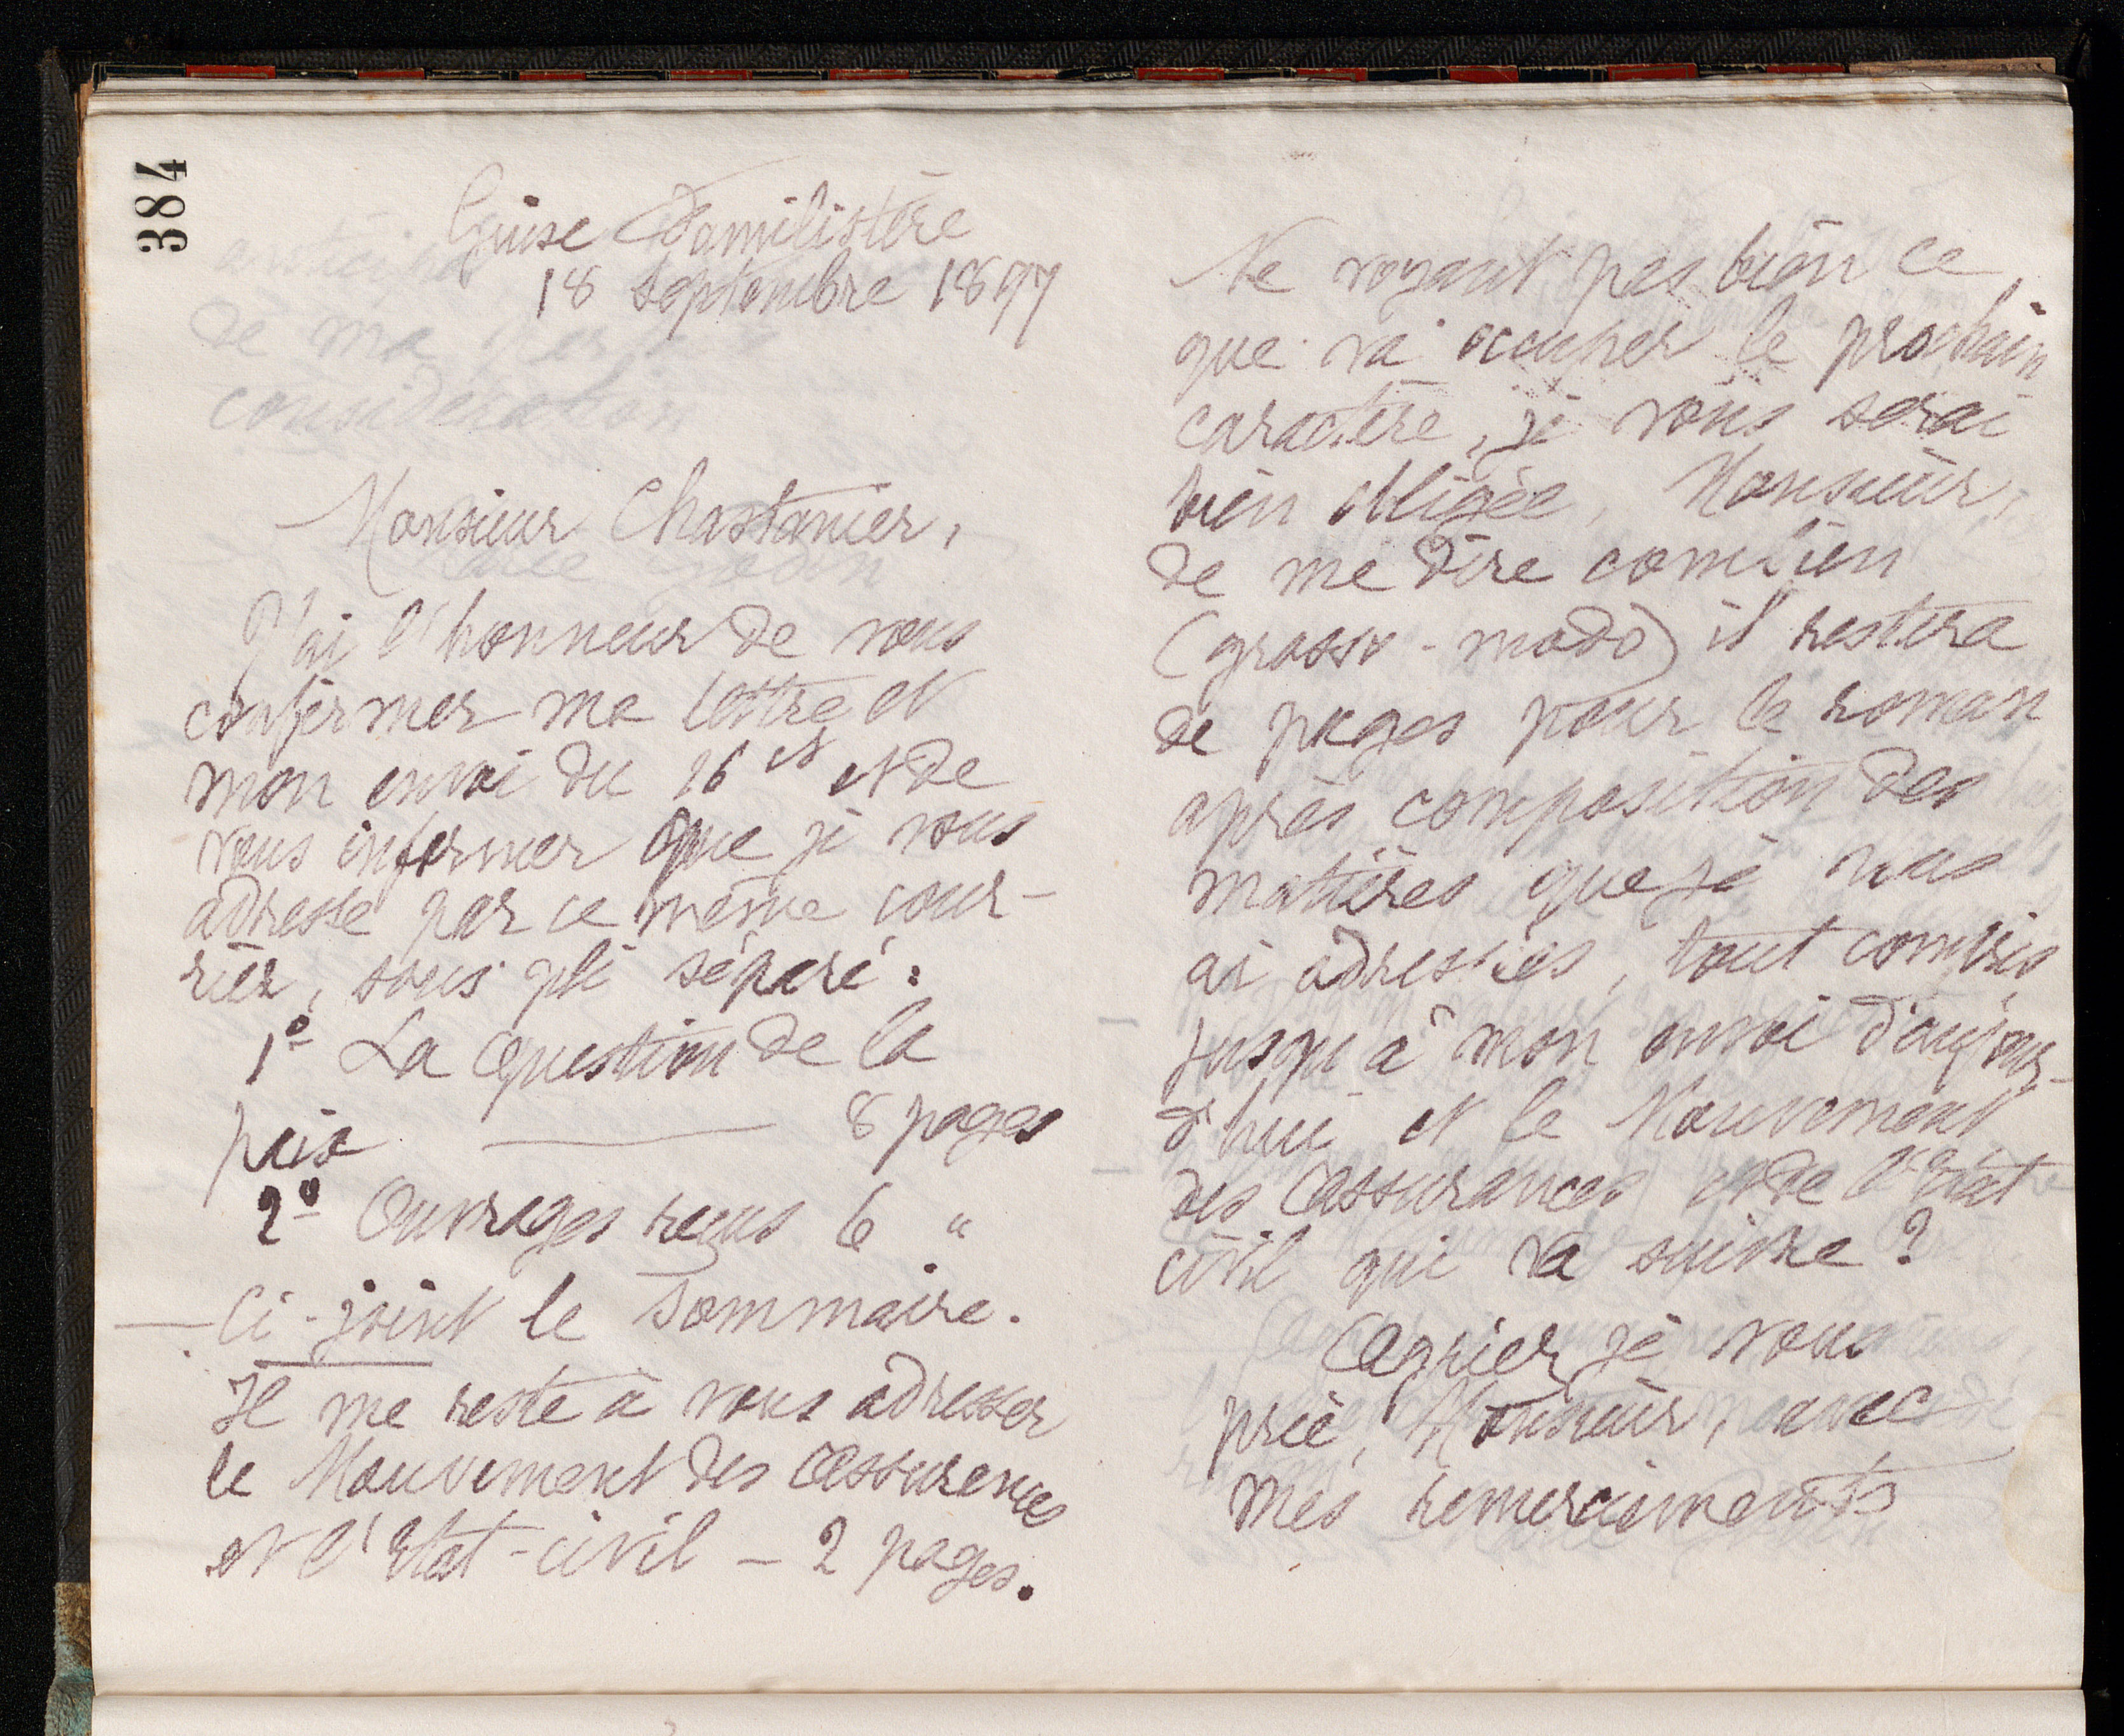 384
Guise Familistère
18 septembre 1897
Monsieur Chastanier,
J'ai l'honneur de vous
confirmer ma lettre et
mon envoi du 16 et et de
vous informer que je vous
adresse par ce même cour-
rier, sous pli séparé :
1° La Question de la
paix — 8 pages
2° Ouvrages reçus 6 "
— Ci-joint le Sommaire.
Il me reste à vous adresser
le Mouvement des Assurances
et l'Etat-civil — 2 pages.
Ne voyant pas bien ce
que va occuper le prochain
caractère, je vous serai
bien obligée, Monsieur,
de me dire combien
(grosso-modo) il restera
de pages pour le roman
après composition des
matières que je vous
ai adressées, tout compris,
jusqu'à mon envoi d'aujour-
d'hui et le Mouvement
des Assurances et de l'Etat
civil qui va suivre ?
Agréer, je vous
prie, Monsieur, avec
mes remerciements